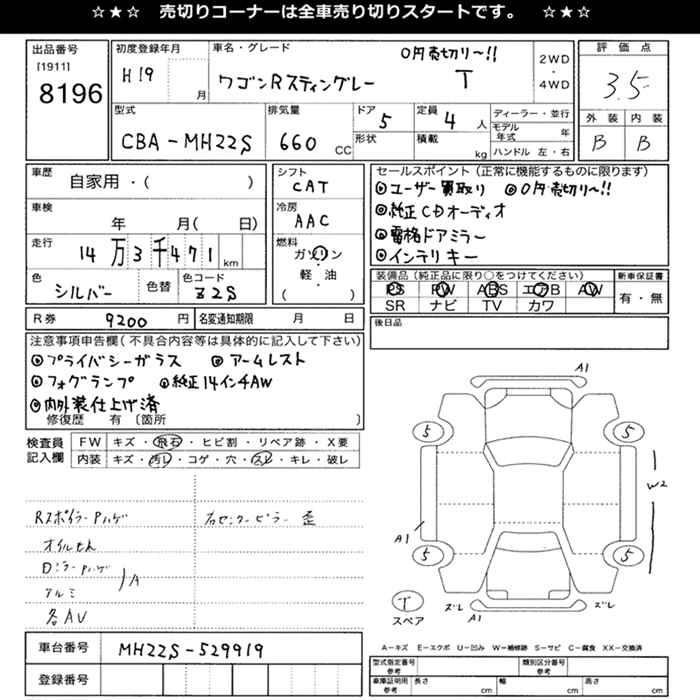 ☆★☆ 売切りコーナーは全車売り切りスタートです。 ☆★☆
出品番号
[1911]
8196
初度登録年月
H19
月
車名・グレード
0円売切リ〜!!
ワゴンRスティングレー T
2WD
・
4WD
評価点
3.5
外装 内装
B B
型式
CBA-MH22S
排気量
660 CC
ドア
5
形状
定員
4 人
積載
kg
ディーラー・並行
モデル年式 年
ハンドル 左・右
車歴
自家用・( )
車検
年 月( 日)
走行
14万3千471 km
色
シルバー
色替
色コード
Z2S
シフト
CAT
冷房
AAC
燃料
ガソリン
・
軽・油
( )
セールスポイント(正常に機能するものに限ります)
◎ユーザー買取り ◎0円売切リ〜!!
◎純正CDオーディオ
◎電格ドアミラー
◎インテリキー
装備品(純正品に限り○をつけてください)
PS PW ABS エアB AW
SR ナビ TV カワ
新車保証書
有・無
後日品
R券 9200 円
名変通知期限 月 日
注意事項申告欄(不具合内容等は具体的に記入して下さい)
◎プライバシーガラス ◎アームレスト
◎フォグランプ ◎純正14インチAW
◎内外装仕上げ済
修復歴 有 〔箇所 〕
検査員
記入欄
FW キズ・飛石・ヒビ割・リペア跡・X要
内装 キズ・汚レ・コゲ・穴・スレ・キレ・破レ
Rスポイラー Pハゲ
右センターピラー 歪
オイルせん
Dミラー Pハゲ
アルミ
A
各AV
A1
5
5
A1
W2
5
5
ズレ
A1
ズレ
T
スペア
A=キズ E=エクボ U=凹み W=補修跡 S=サビ C=腐食 XX=交換済
車台番号 MH22S-529919
登録番号
型式指定番号
参考
類別区分番号
参考
車庫証明用
参考
長さ cm
幅 cm
高さ cm